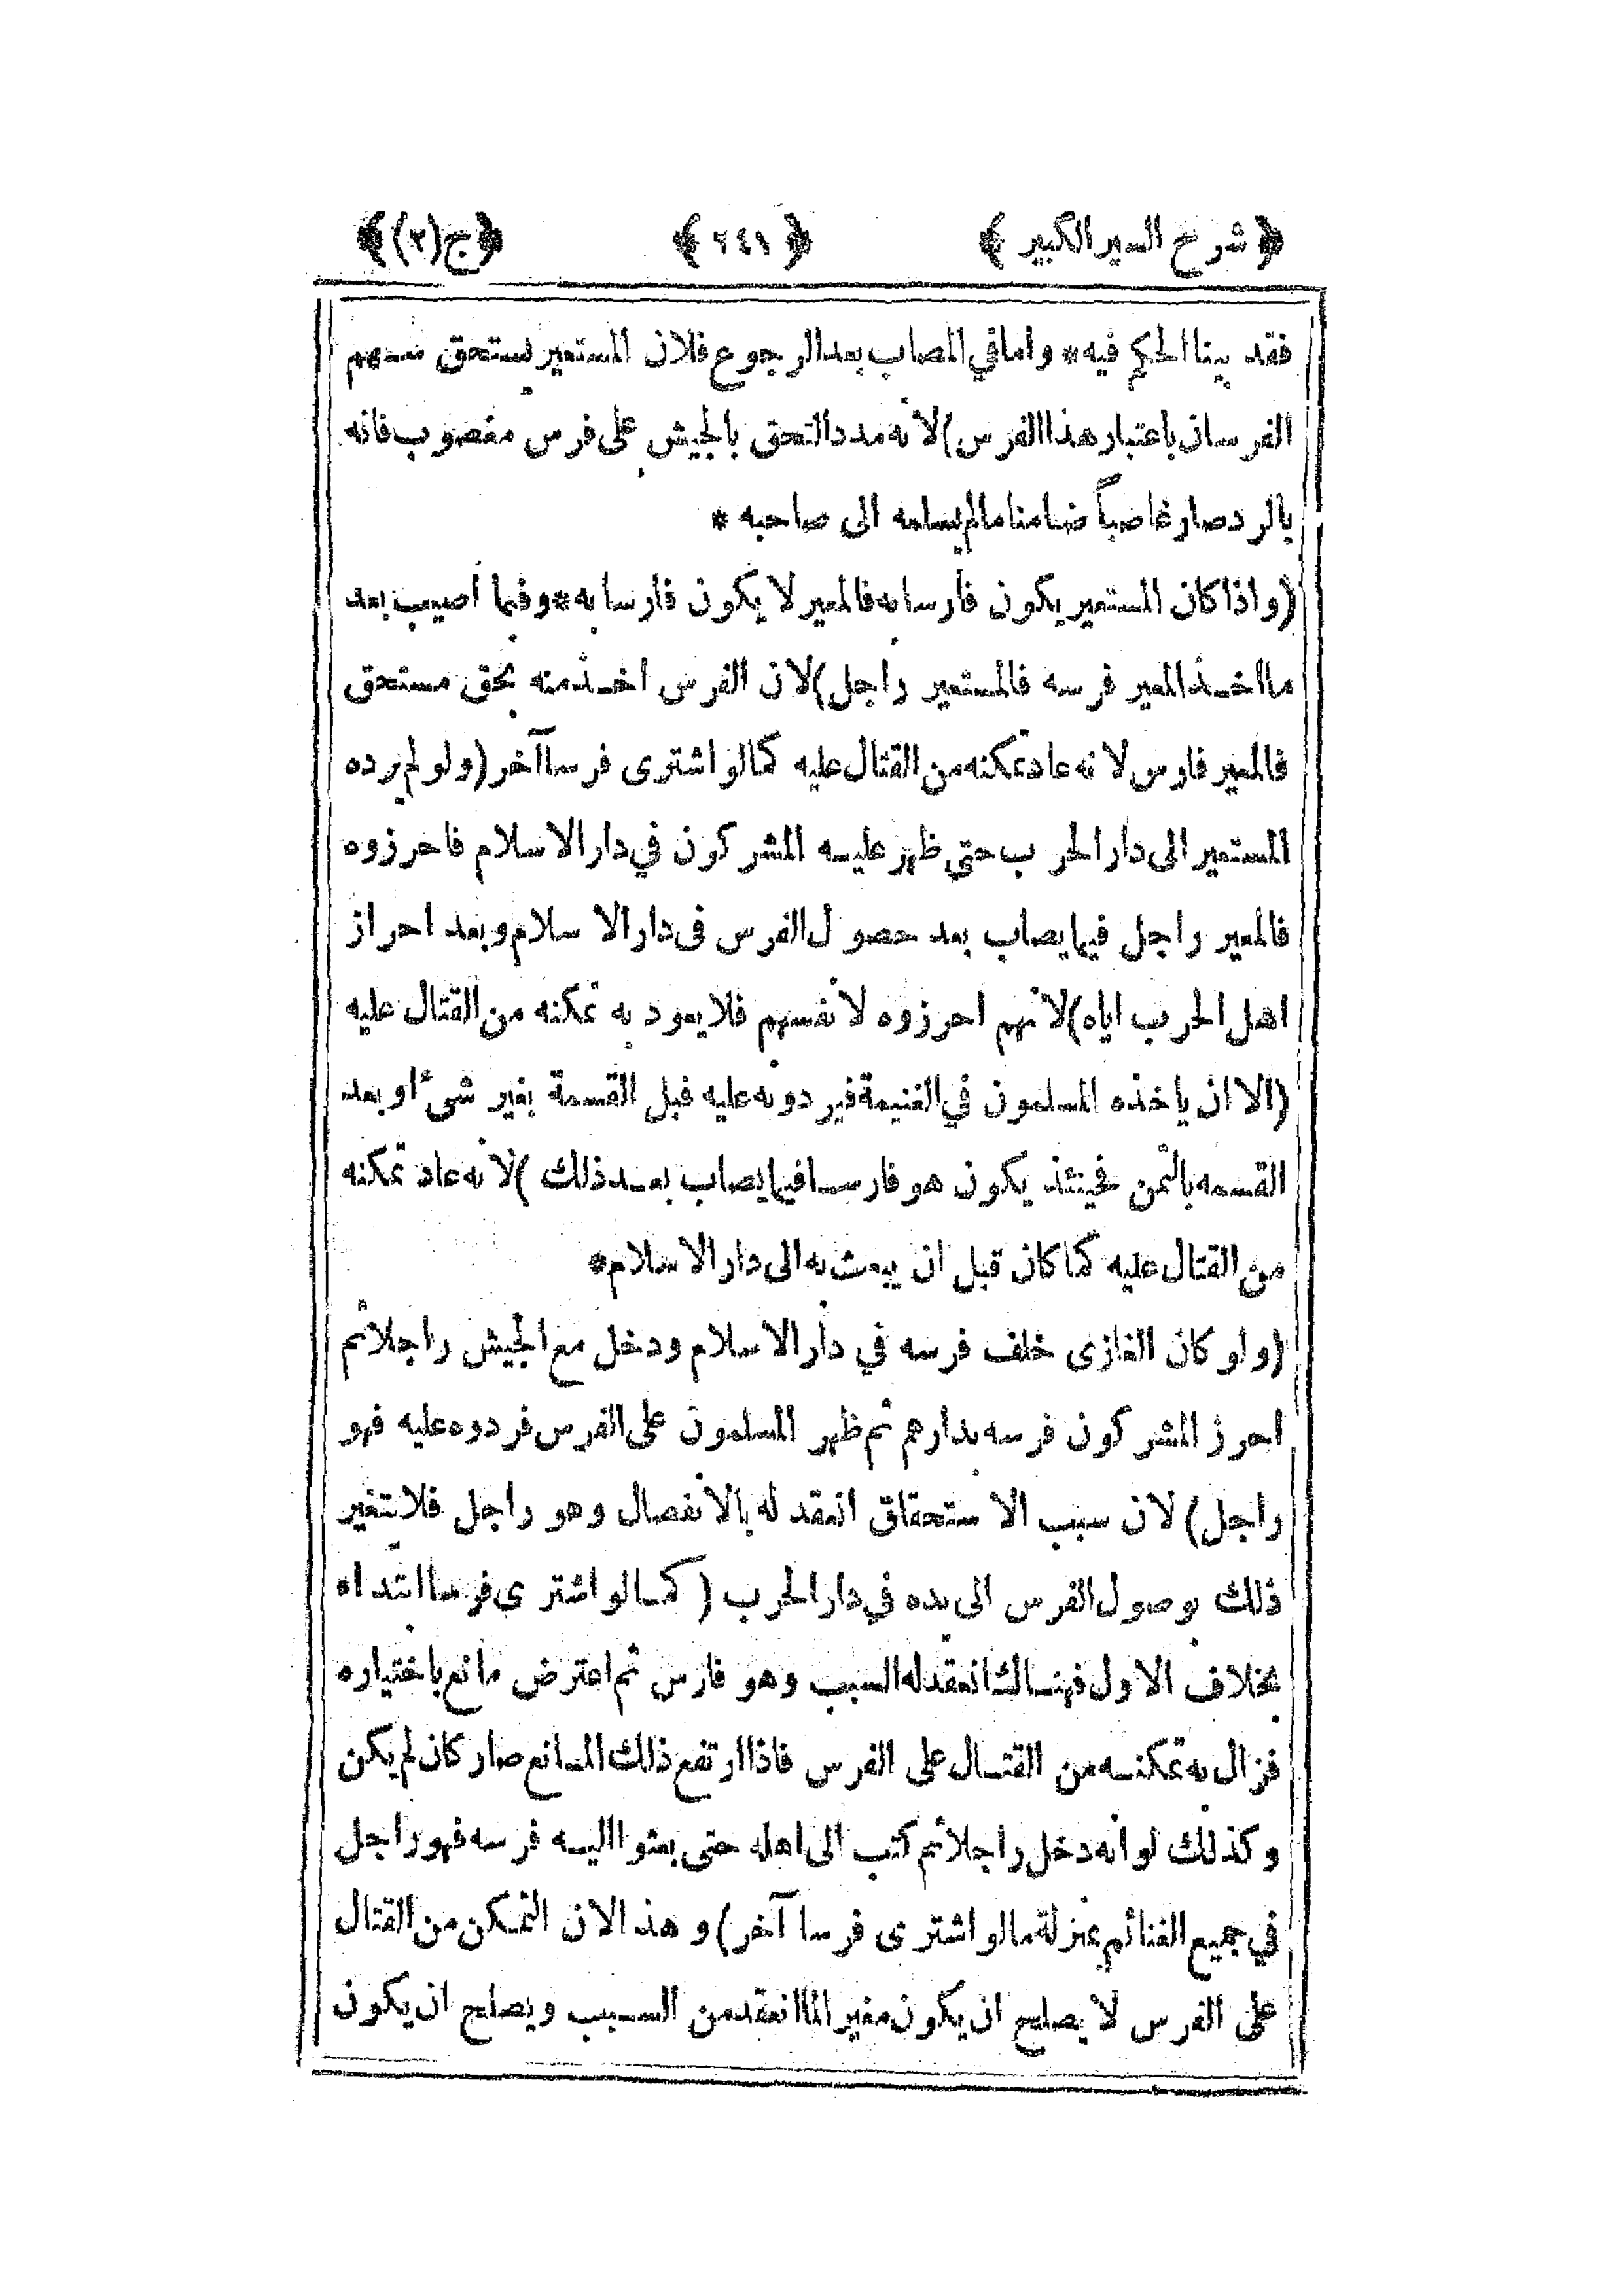 ﴿شرح السير الكبير﴾ ﴿٢٤١﴾ ﴿ج(٢)﴾
فقد بينا الحكم فيه* واما في المصاب بعد الرجوع فلان المستعير يستحق سهم
الفرسان باعتبار هذا الفرس) لانه مدد التحق بالجيش على فرس مغصوب فانه
بالرد صار غاصباً ضامنا مالم يسلمه الى صاحبه *
(واذا كان المستعير يكون فارسا به فالمعير لا يكون فارسا به* وفيما اصيب بعد
ما اخذ المعير فرسه فالمستعير راجل) لان الفرس اخذ منه بحق مستحق
فالمعير فارس لانه عاد تمكنه من القتال عليه كما لو اشترى فرسا آخر (ولو لم يرده
المستعير الى دار الحرب حتى ظهر عليه المشركون في دار الاسلام فاحرزوه
فالمعير راجل فيما يصاب بعد حصول الفرس فى دار الاسلام وبعد احراز
اهل الحرب اياه) لانهم احرزوه لانفسهم فلا يعود به تمكنه من القتال عليه
(الا ان ياخذه المسلمون في الغنيمة فيردونه عليه قبل القسمة بغير شئ او بعد
القسمه بالثمن فحينئذ يكون هو فارسا فيما يصاب بعد ذلك) لانه عاد تمكنه
من القتال عليه كما كان قبل ان يبعث به الى دار الاسلام*
(ولو كان الغازى خلف فرسه في دار الاسلام ودخل مع الجيش راجلا ثم
احرز المشركون فرسه بدارهم ثم ظهر المسلمون على الفرس فردوه عليه فهو
راجل) لان سبب الاستحقاق انعقد له بالانفصال وهو راجل فلا يتغير
ذلك بوصول الفرس الى يده في دار الحرب (كما لو اشترى فرسا ابتداء
بخلاف الاول فهناك انعقد له السبب وهو فارس ثم اعترض مانع باختياره
فزال به تمكنه من القتال على الفرس فاذا ارتفع ذلك المانع صار كان لم يكن
وكذلك لو انه دخل راجلا ثم كتب الى اهله حتى بعثوا اليه فرسه فهو راجل
في جميع الغنائم بمنزلة ما لو اشترى فرسا آخر) وهذا لان التمكن من القتال
على الفرس لا يصلح ان يكون مغيرا لما انعقد من السبب ويصلح ان يكون